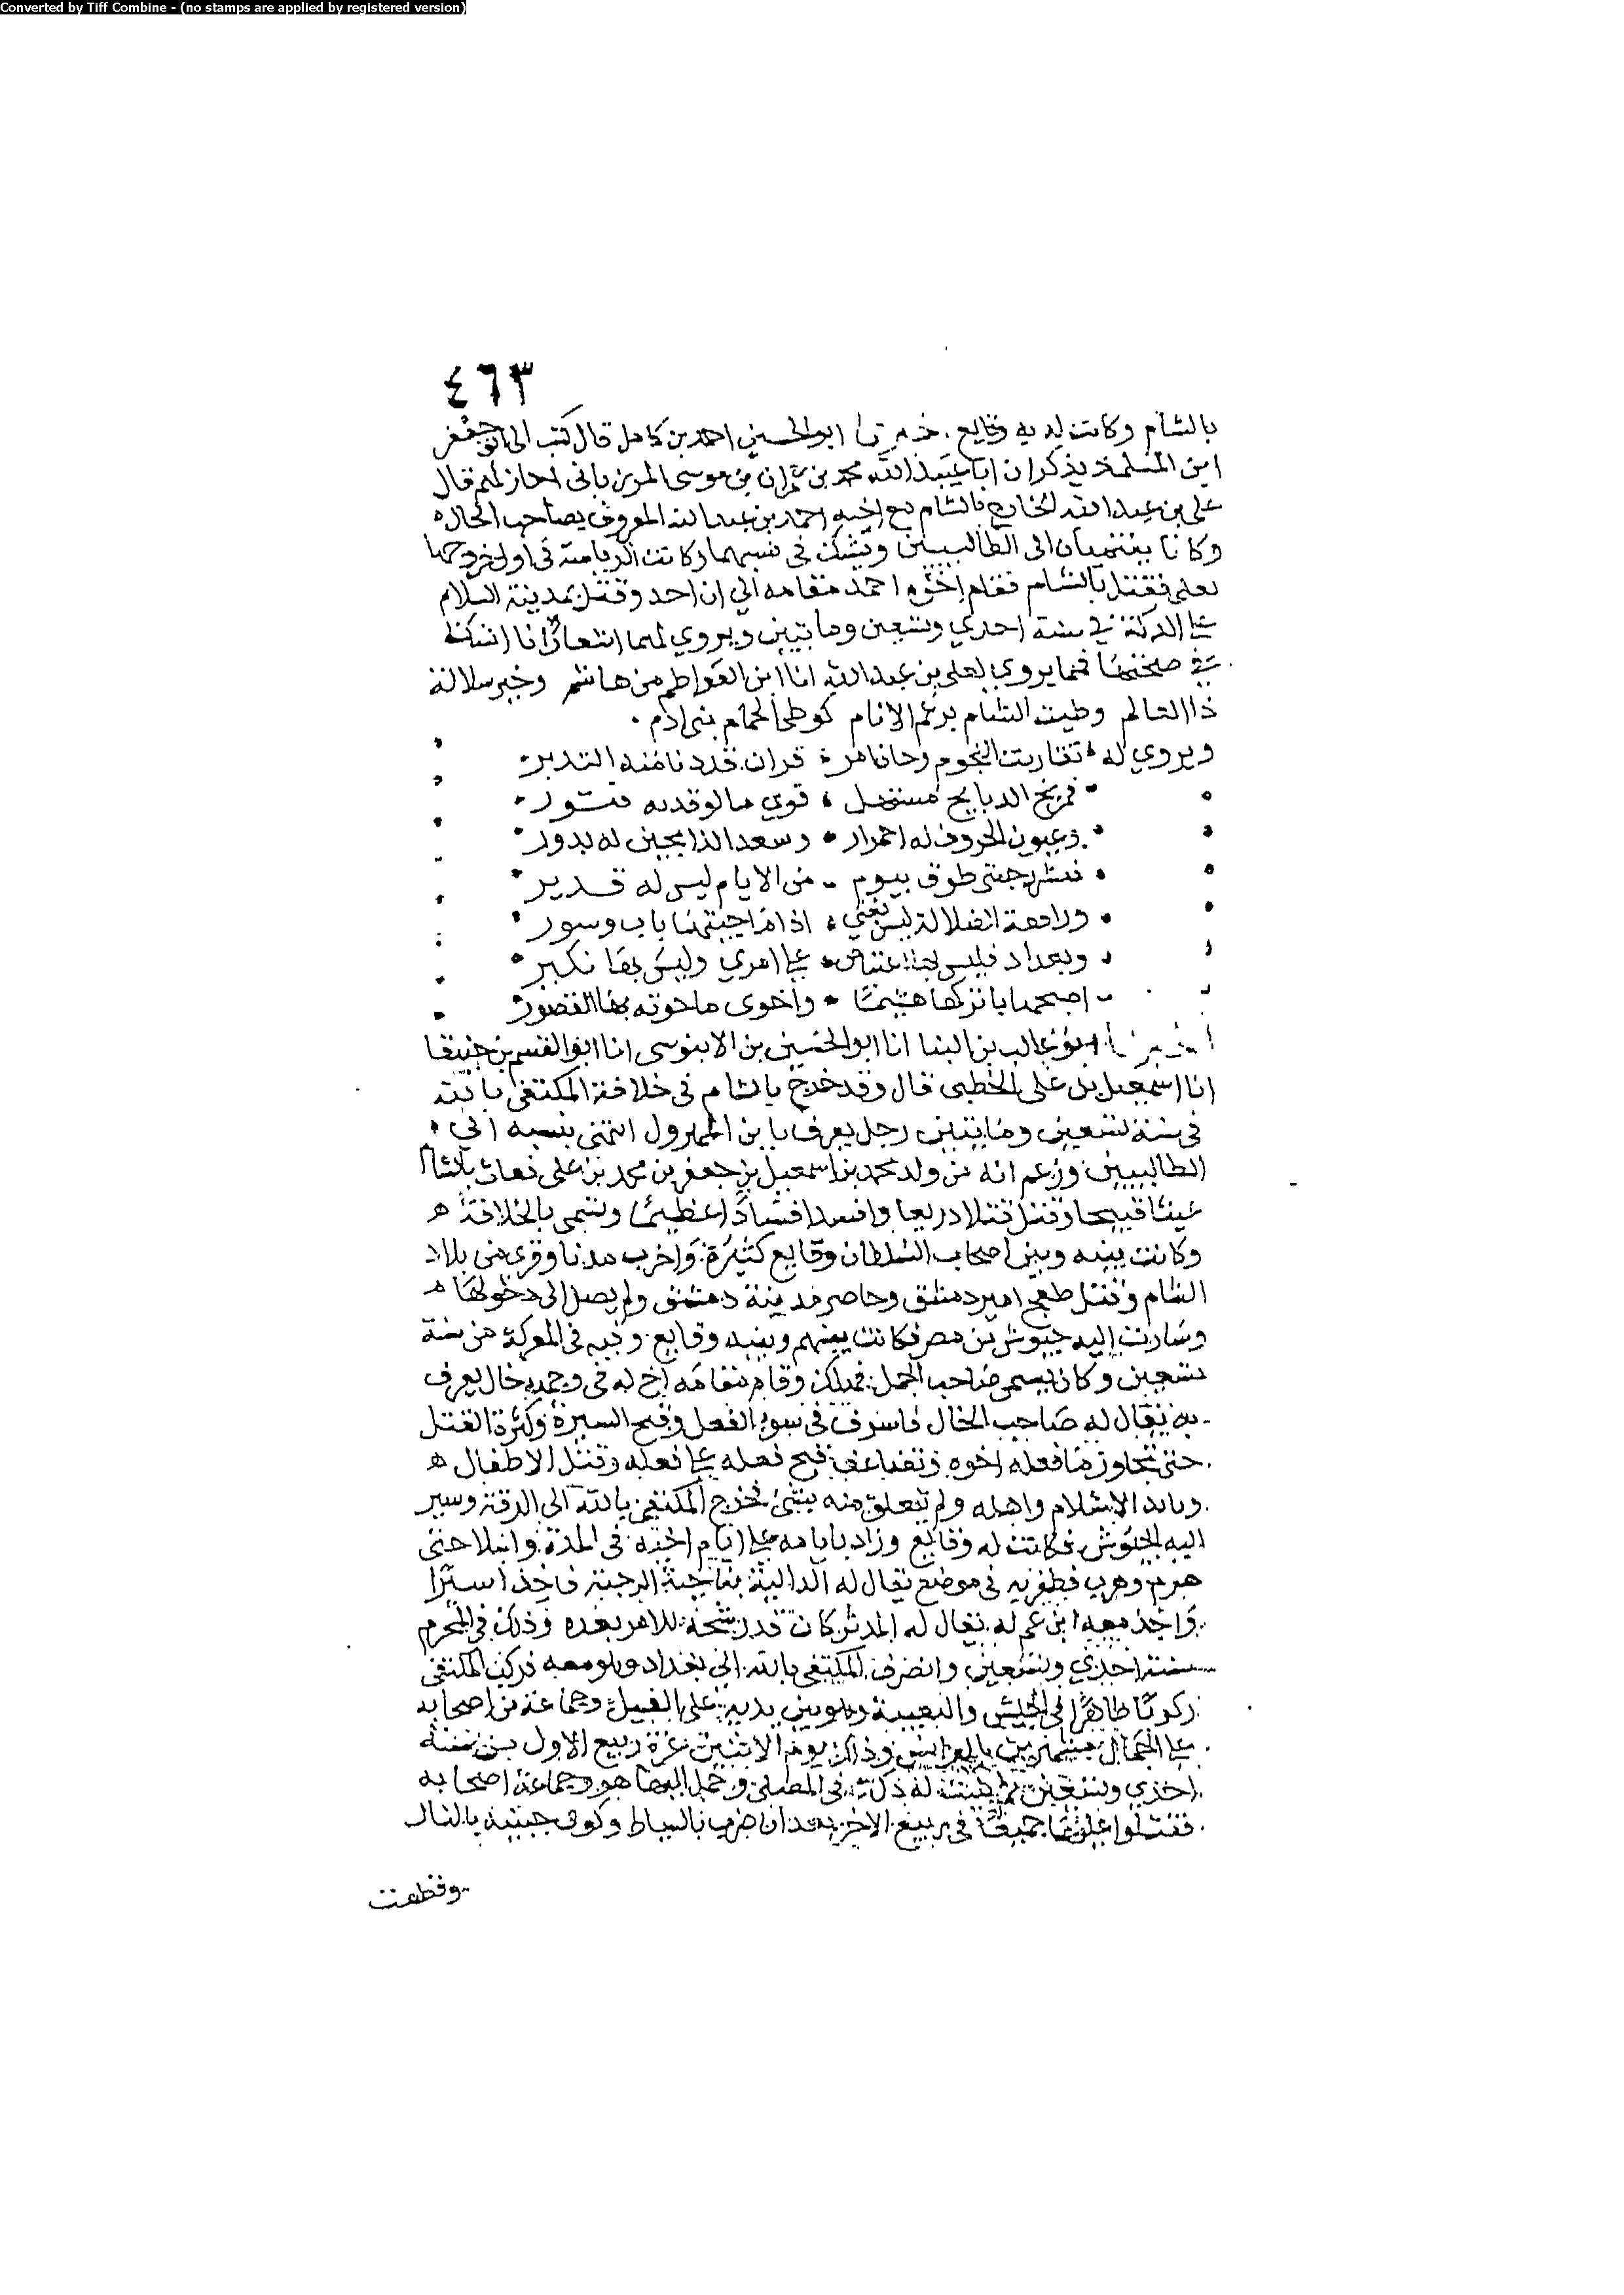 Converted by Tiff Combine - (no stamps are applied by registered version)
٤٦٣
بالشام وكانت له به وقايع . خبرنا ابو الحسين احمد بن كامل قال كتب الى ابو جعفر
ابن المسلمة يذكر ان ابا عبيد الله محمد بن عمران بن موسى المرزباني اجاز لهم قال
على بن عبد الله الخارج بالشام مع اخيه احمد بن عبد الله المعروف بصاحب الخال ه
وكانا ينتميان الى الطالبيين ويشك في نسبهما وكانت الرياسة في اول خروجهما
لعلي فقتل بالشام فقام اخوه احمد مقامه الي ان اخذ وقتل بمدينة السلام
على الدكة في سنة احدي وتسعين ومايتين ويروي لهما اشعار انا اشك
في صحتها فمما يروي لعلي بن عبد الله انا ابن الفواطم من هاشم وخير سلالة
ذا العالم وطيت الشام برغم الانام كوطي الحمام بني ادم .
ويروي له تقاربت النجوم وحان امر قران قد دنا منه النذير
فمريخ الذبايح مستهل قوي ما لوقدته
وعيون الحروف له احمرار وسعد الذابحين له بدور
طوق بيوم من الايام ليس له قدير
ورافعة الضلالة ليس تغني اذا ما جيتها باب وسور
وبغداد فليس بها اعتياص على امري وليس بها نكير
اصبحها باتركها هشيما واخوى ما حوته بها القصور
اخبرنا ابو غالب بن البنا انا ابو الحسين بن الابنوسى انا ابو القسم بن جنيقا
انا اسمعيل بن على الخطبى قال وقد خرج بالشام فى خلافة المكتفى بالله
فى سنة تسعين ومايتين رجل يعرف بابن المهزول انتمى بنسبه الي
الطالبيين وزعم انه من ولد محمد بن اسمعيل بن جعفر بن محمد بن على فعاث بالشام
عيثا قبيحا وقتل قتلا ذريعا وافسد افسادا عظيما وتسمى بالخلافة ه
وكانت بينه وبين اصحاب السلطان وقايع كثيرة واخرب مدنا وقرى من بلاد
الشام وقتل طغج امير دمشق وحاصر مدينة دمشق ولم يصل الى دخولها ه
وسارت اليه جيوش من مصر فكانت بينهم وبينه وقايع فى المعركة من سنة
تسعين وكان يسمى صاحب الجمل فهلك وقام مقامه اخ له فى وجهه خال يعرف
به يقال له صاحب الخال فاسرف فى سوء الفعل وقبح السيرة وكثرة القتل
حتى تجاوز ما فعله اخوه وتضاعف قبح فعله على فعله وقتل الاطفال ه
ونابذ الاسلام واهله ولم يتعلق منه بشئ فخرج المكتفى بالله الى الرقة وسير
اليه الجيوش فكانت له وقايع وزاد بايامه على ايام اخيه فى المدة والبلا حتى
هزم وهرب فظفر به فى موضع يقال له الدالية بناحية الرحبة فاخذ اسيرا
واخذ معه ابن عم له يقال له المدثر كان قد رشحه للامر بعده وذلك فى المحرم
سنة احدي وتسعين وانصرف المكتفى بالله الى بغداد وهو معه فركب المكتفى
ركوبا ظاهرا فى الجيش والتعبية وهو بين يديه على الفيل وجماعة من اصحابه
على الجمال مشهرين بالبرانس وذلك يوم الاثنين غرة ربيع الاول من سنة
احدي وتسعين ثم بنيت له دكة فى المصلى وحمل اليها هو وجماعة اصحابه
فقتلوا عليها جميعا فى ربيع الاخر بعد ان ضرب بالسياط وكوى جبينه بالنار
وقطعت